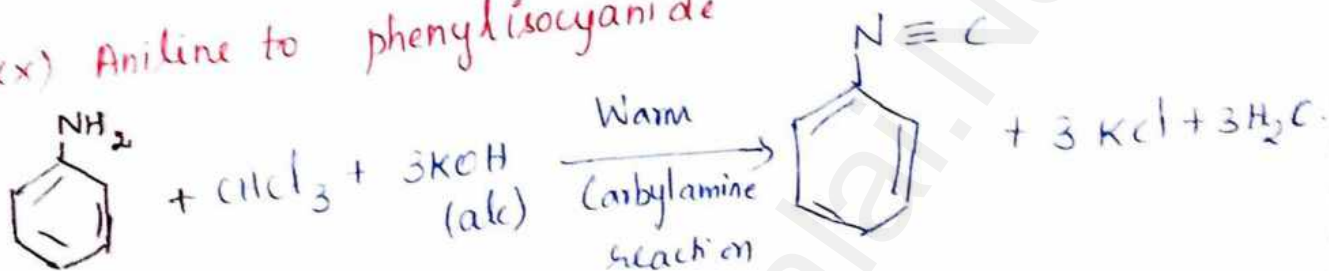 (x) Aniline to phenylisocyanide
NH₂ + CHCl₃ + 3KOH (alc) Warm Carbylamine reaction N ≡ C + 3 KCl + 3H₂O.